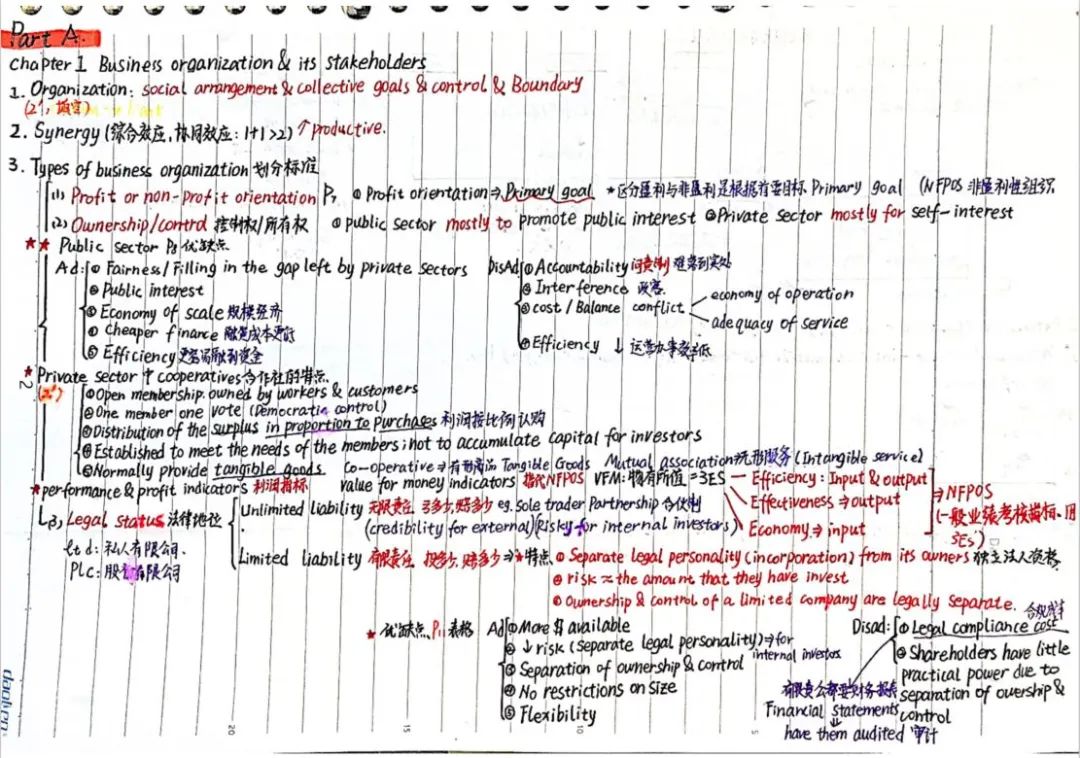 Part A.
Chapter 1 Business organization & its stakeholders
1. Organization: social arrangement & collective goals & control & Boundary
2. Synergy (综合效应, 协同效应: 1+1>2) ↑ productive.
3. Types of business organization 划分标准
(1) Profit or non-Profit orientation P7 ① Profit orientation ⇒ Primary goal ★区分盈利与非盈利是根据首要目标 Primary goal (NFPOS 非盈利性组织
(2) Ownership/control 控制权/所有权 ① public sector mostly to promote public interest ② Private sector mostly for self-interest
★★ Public sector P8 优缺点
Ad: ① Fairness/Filling in the gap left by private sectors
② Public interest
③ Economy of scale 规模经济
④ Cheaper finance 融资成本更低
⑤ Efficiency 更容易融到资金
DisAd ① Accountability 问责制 难落到实处
② Interference 政客
③ cost / Balance conflict
economy of operation
adequacy of service
④ Efficiency ↓ 运营办事效率低
★ Private sector 中 cooperatives 合作社的特点.
① Open membership. owned by workers & customers
② One member one vote (Democratic control)
③ Distribution of the surplus in proportion to purchases 利润按比例认购
④ Established to meet the needs of the members; not to accumulate capital for investors
⑤ Normally provide tangible goods Co-operative ⇒ 有形商品 Tangible Goods Mutual association 无形服务 (Intangible service)
★ performance & profit indicators 利润指标 value for money indicators 替代NFPOS VFM: 物有所值 = 3ES
Efficiency: Input & output
Effectiveness ⇒ output
Economy ⇒ input
⇒ NFPOS
(一般业绩考核指标、用
3ES)
(3) Legal status 法律地位
Ltd: 私人有限公司.
PLC: 股份有限公司
Unlimited liability 无限责任 亏多少, 赔多少 eg. Sole trader Partnership 合伙制
(credibility for external) (Risky for internal investors)
Limited liability 有限责任 投多少, 赔多少 ⇒ 特点. ① Separate legal personality (incorporation) from its owners 独立法人资格
② risk ≈ the amount that they have invest
③ Ownership & control of a limited company are legally separate.
★ 优缺点 P11 表格
Ad ① More $ available
② ↓ risk (Separate legal personality) ⇒ for internal investors
③ Separation of ownership & control
④ No restrictions on size
⑤ Flexibility
合规成本
Disad: ① Legal compliance cost
② Shareholders have little
practical power due to
separation of ouership &
control
有限责公都要财务报表
Financial statements
have them audited 审计
20
15
10
5